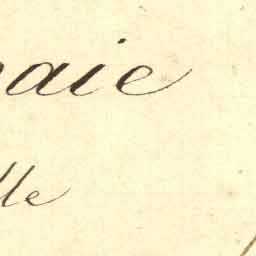 aie
lle